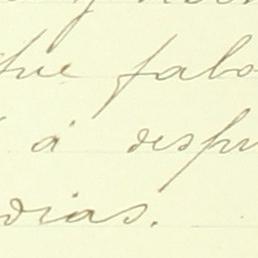 que falo
á desp
dias.